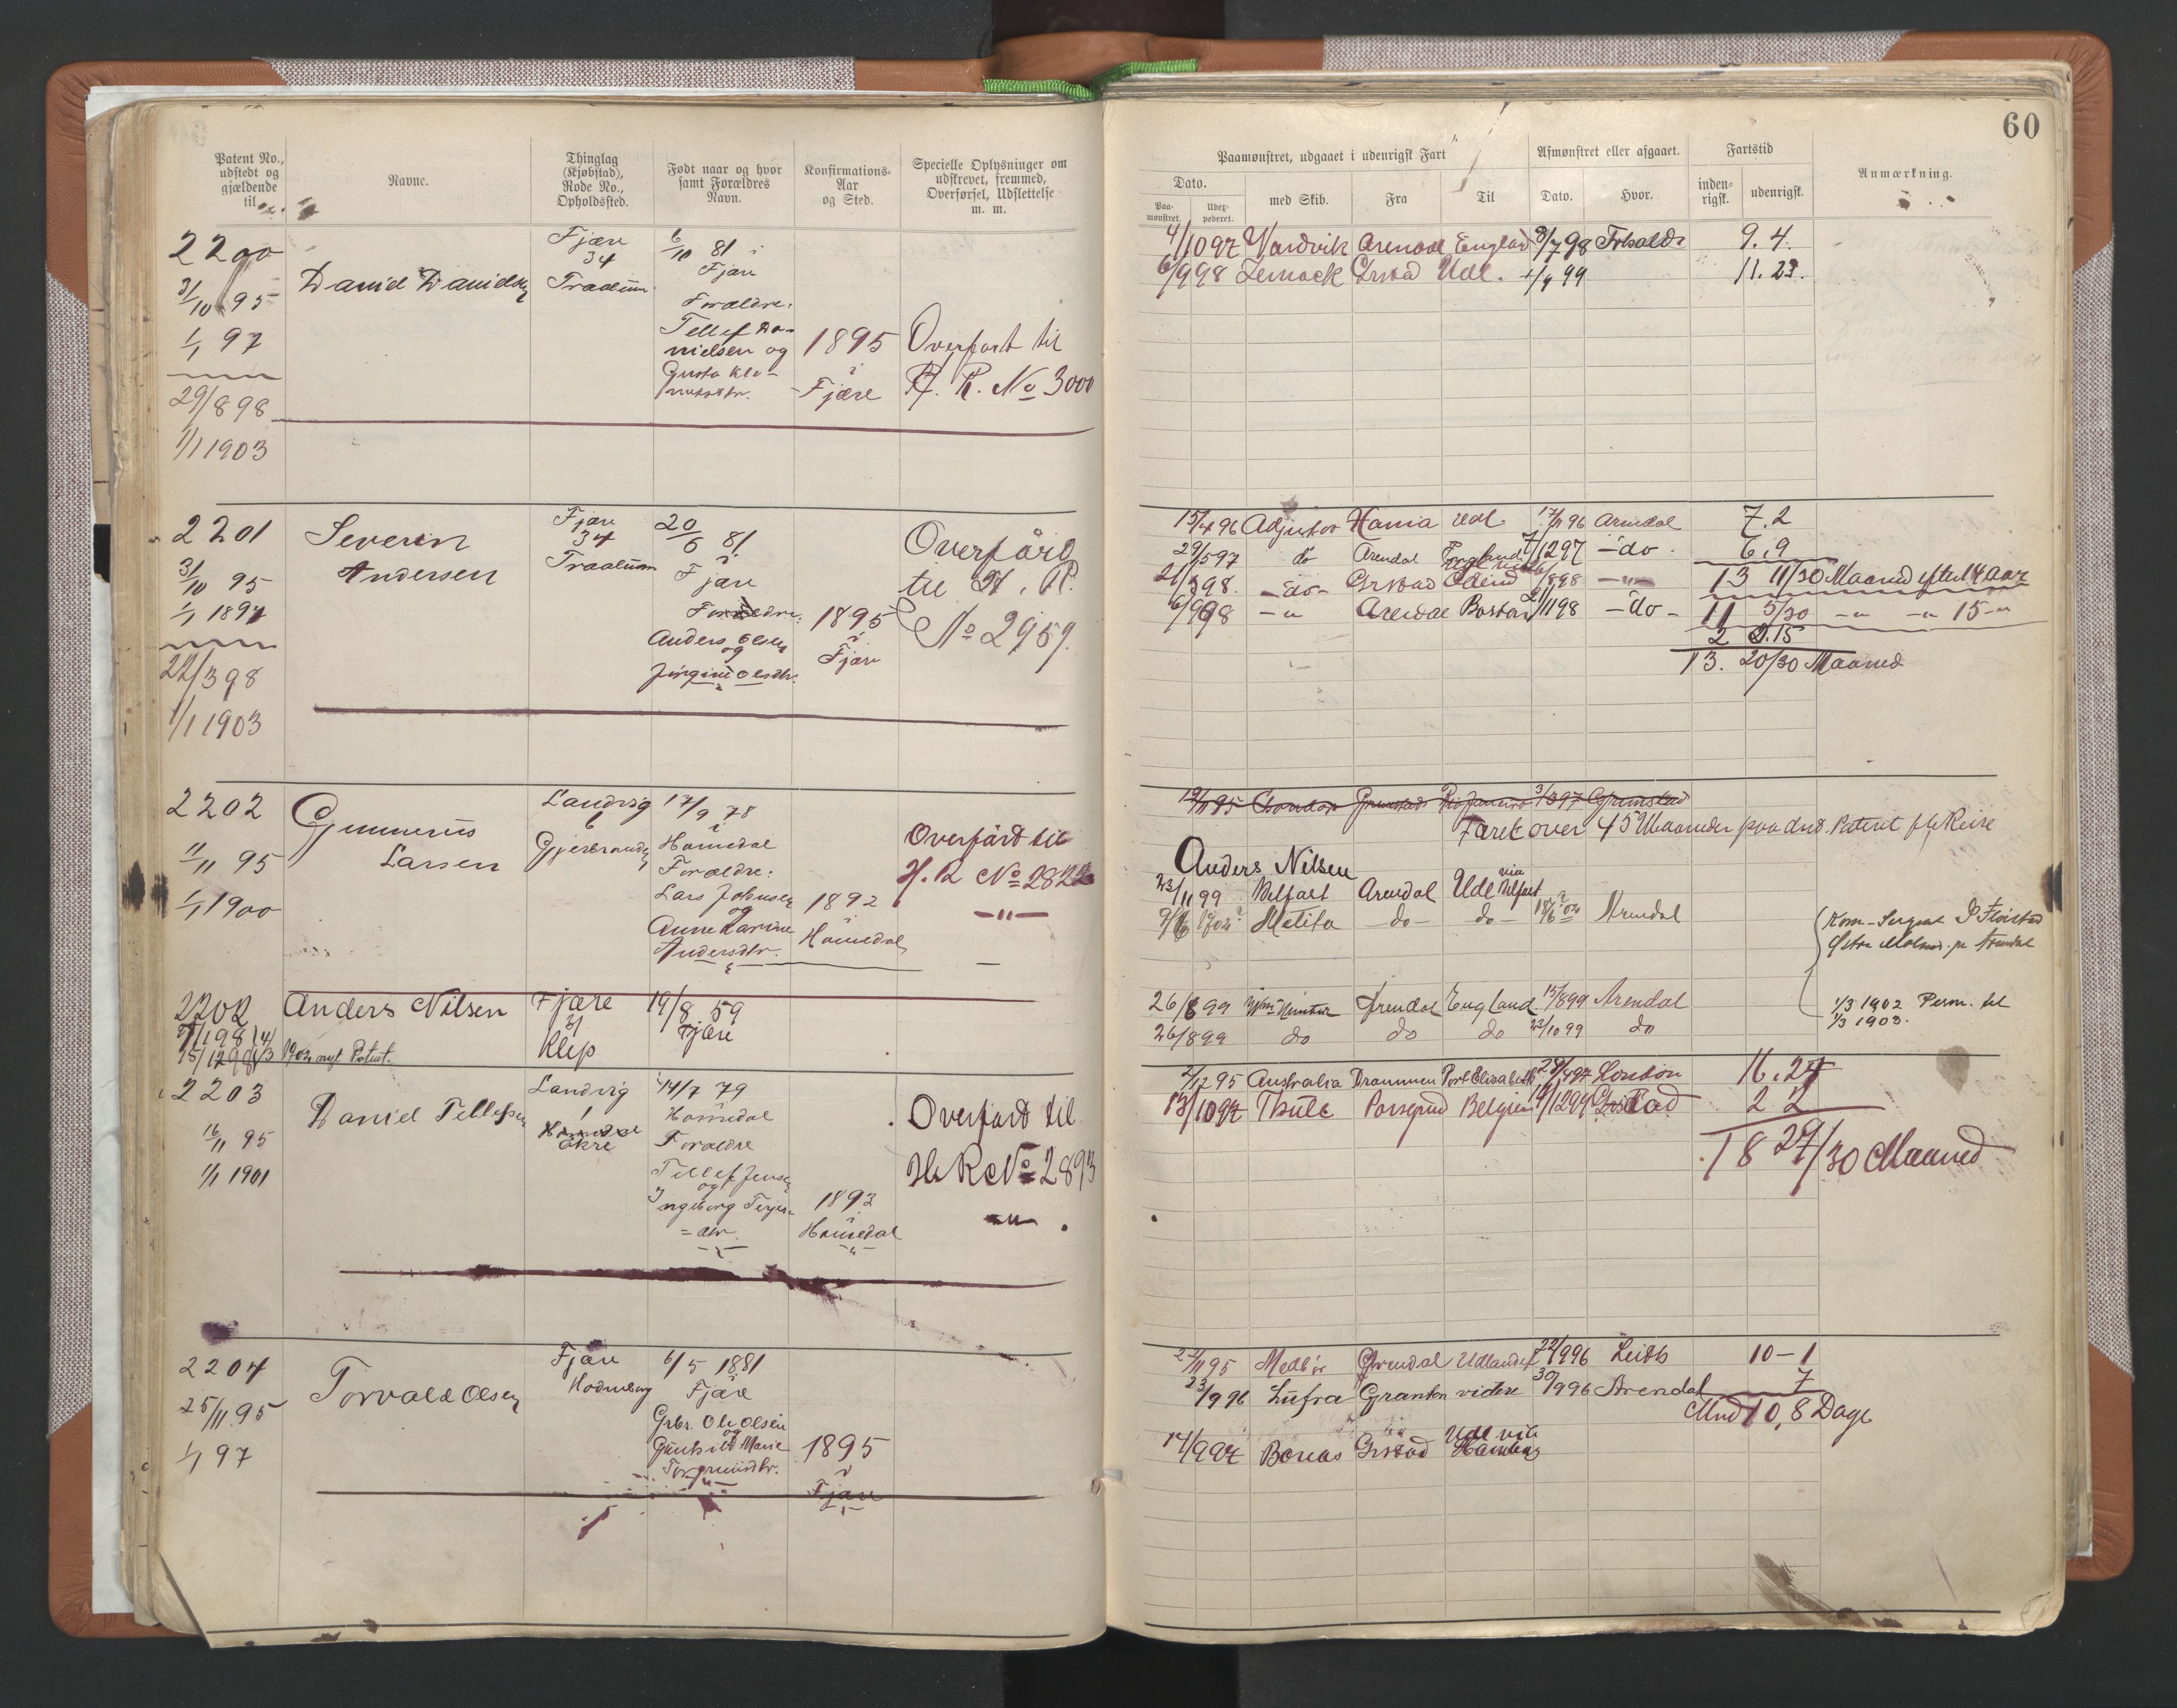 60
Patent No., udstedt og gjældende til
Navne.
Thinglag (Kjøbstad), Rode No., Opholdssted.
Født naar og hvor samt Forældres Navn.
Konfirmations-Aar og Sted.
Specielle Oplysninger om udskrevet, fremmed, Overførsel, Udslettelse m. m.
Paamønstret, udgaaet i udenrigsk Fart
Afmønstret eller afgaaet.
Fartstid
Anmærkning.
Dato.
Paamønstret.
med Skib.
Fra
Til
Dato.
Hvor.
indenrigsk.
udenrigsk.
2200
31/10 95
1/1 97
29/8 98
1/1 1903
Daniel Danielsen
Fjære
34
Traalum
6/10 81
i
Fjære
Forældre:
Tellef Danielsen og
1895
i
Fjære
Overført til
H. R. No 3000
4/10 97 Vardvik Arendal England 8/7 98
9. 4.
6/9 98 Grstad Udl. 99
11. 23.
2201
31/10 95
1/1 1897
22/3 98
1/1 1903
Severin
Andersen
Fjære
34
Traalum
20/6 81
i
Fjære
Forældre:
Anders Olsen
og
Jörgine Olsdtr.
1895
i
Fjære
Overført
til H. R.
No 2959.
15/4 96 Adjutor Havna Udl. 17/11 96 Arendal 7.2
29/5 97 do Arendal England 7/12 97 - do - 6.9
- do - Grstad 8 98 - " - 13 11/30 Maaned efter 14 Aar
6/9 98 - " Arendal Boston 21/11 98 - do - 11 5/30 - " - " 15 - "
2 2.15
13. 20/30 Maaned
2202
11/11 95
1/1 1900
Gunnerius
Larsen
Landvig
6
17/9 78
i
Homedal
Forældre:
Lars Johnsen
og
Anne Karine
Andersdtr.
1892
i
Homedal
Overført til
H. R No 2822
- " -
19/11 95 Condor Grimstad Rio Janeiro 3/3 97 Grimstad
Faret over 45 Maaneder paa dnd. Patent
Anders Nilsen
23/11 99 Belfast Arendal Udl via Belfast
Melita - do - do - Arendal
Kom-Sergent P Fløistad
1/3 1902 Perm. til
1/3 1903.
2202
Anders Nilsen
Fjære
31
Klep
19/8 59
Fjære
1902 nyt Patent.
26/6 99 Arendal England 15/8 99 Arendal
26/8 99 do do do 22/10 99 do
2203
16/11 95
1/1 1901
Daniel Tellefsen
Landvig
1
Homedal
Økre
14/7 79
i
Homedal
Forældre
Tellef Jensen
og
Ingeborg Terjes-
=dtr.
1893
i
Homedal
Overført til
H. R No 2893
- " -
2/12 95 Australia Drammen Port Elisabeth 28/4 97 London 16.27
13/10 97 Thule Porsgrund Belgien 14/12 97 Grstad 2 2
18 29/30 Maaned
2204
25/11 95
1/1 97
Torvald Olsen
Fjære
6/5 1881
i
Fjære
Grbr. Ole Olsen
og
Gunhild Marie
1895
i
Fjære
11 95 Medbør Arendal Udlandet 22/9 96 Leith 10 - 1
23/9 96 Lufra Granton videre 30/9 96 Arendal 7
Mnd 10, 8 Dage
14/9 97 Bonas Grstad Udl via Hamburg